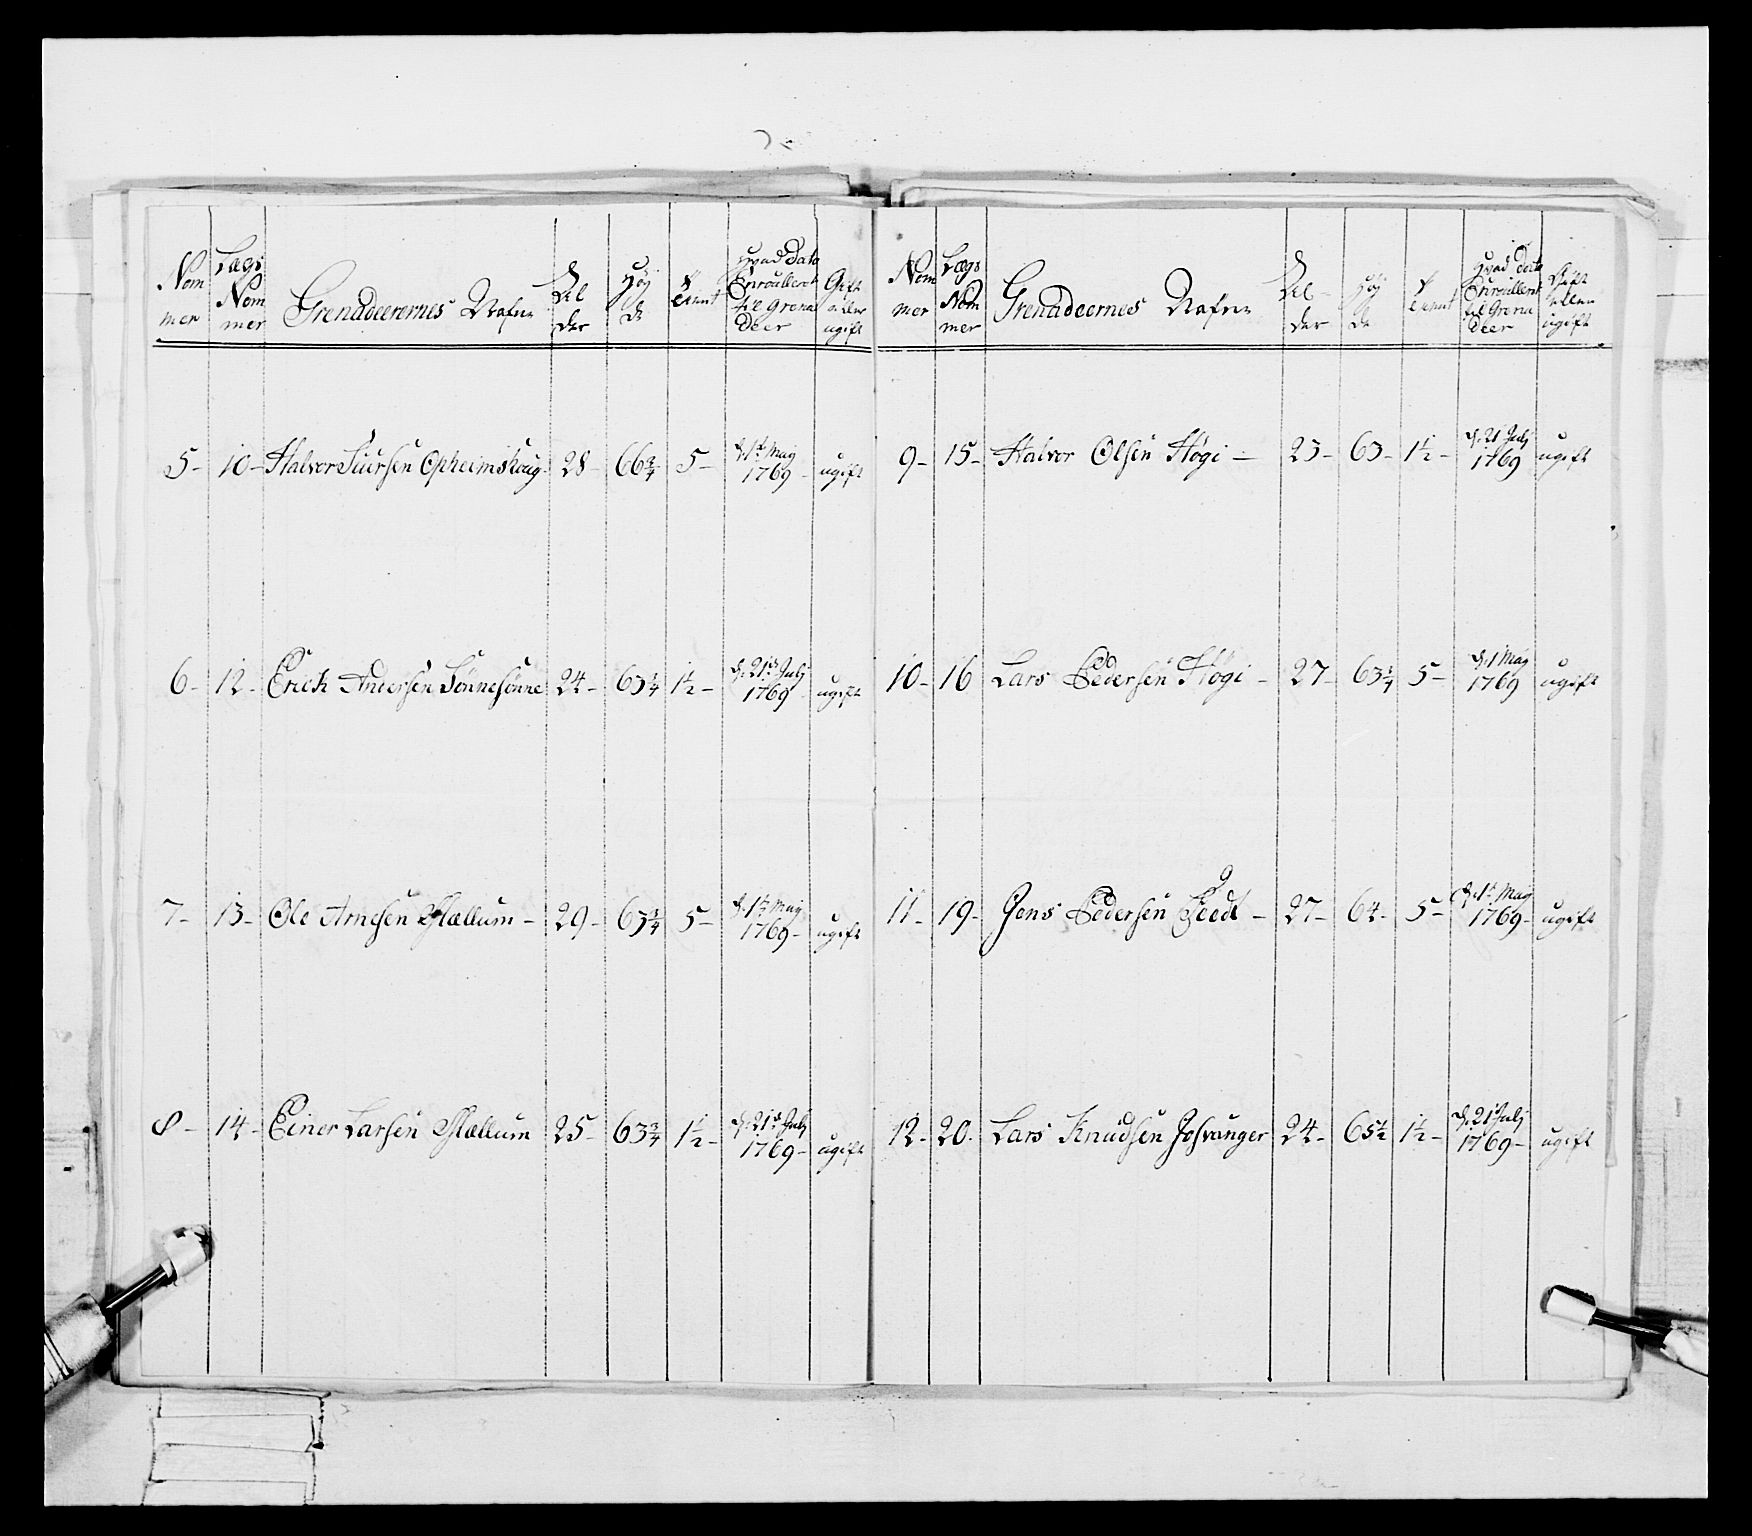 Nommer | Lægs Nommer | Grenadeerernes Nafne | Alder | Høyde | Tient | Hvad Dato Enroullert til Grenadeer | Gift eller ugift
5- | 10- | Halvor Siursen Opheimshoug- | 28- | 66 3/4 | 5- | d: 1te May 1769- | ugift
6- | 12- | Erich Andersen Sønnesønne | 24- | 63 1/4 | 1 1/2- | d: 21de Julj 1769- | ugift
7- | 13- | Ole Arnesen Mællum- | 29- | 63 3/4 | 5- | d: 1te May 1769- | ugift
8- | 14- | Einer Larsen Mællum | 25- | 63 3/4 | 1 1/2- | d: 21de Julj 1769- | ugift
Nommer | Lægs Nommer | Grenadeernes Nafne | Alder | Høyde | Tient | Hvad Dato Enroullert til Grenadeer | Gift eller ugift
9- | 15- | Halvor Olsen Høgi- | 23- | 63- | 1 1/2- | d: 21 Julj 1769 | ugift
10- | 16 | Lars Pedersen Høgi- | 27- | 63 1/4 | 5- | d: 1 May 1769 | ugift
11- | 19- | Jens Pedersen - | 27- | 64- | 5- | d: 1te May 1769- | ugift
12- | 20- | Lars Knudsen Josvanger | 24- | 65 1/2 | 1 1/2- | d: 21 Julj 1769- | ugift